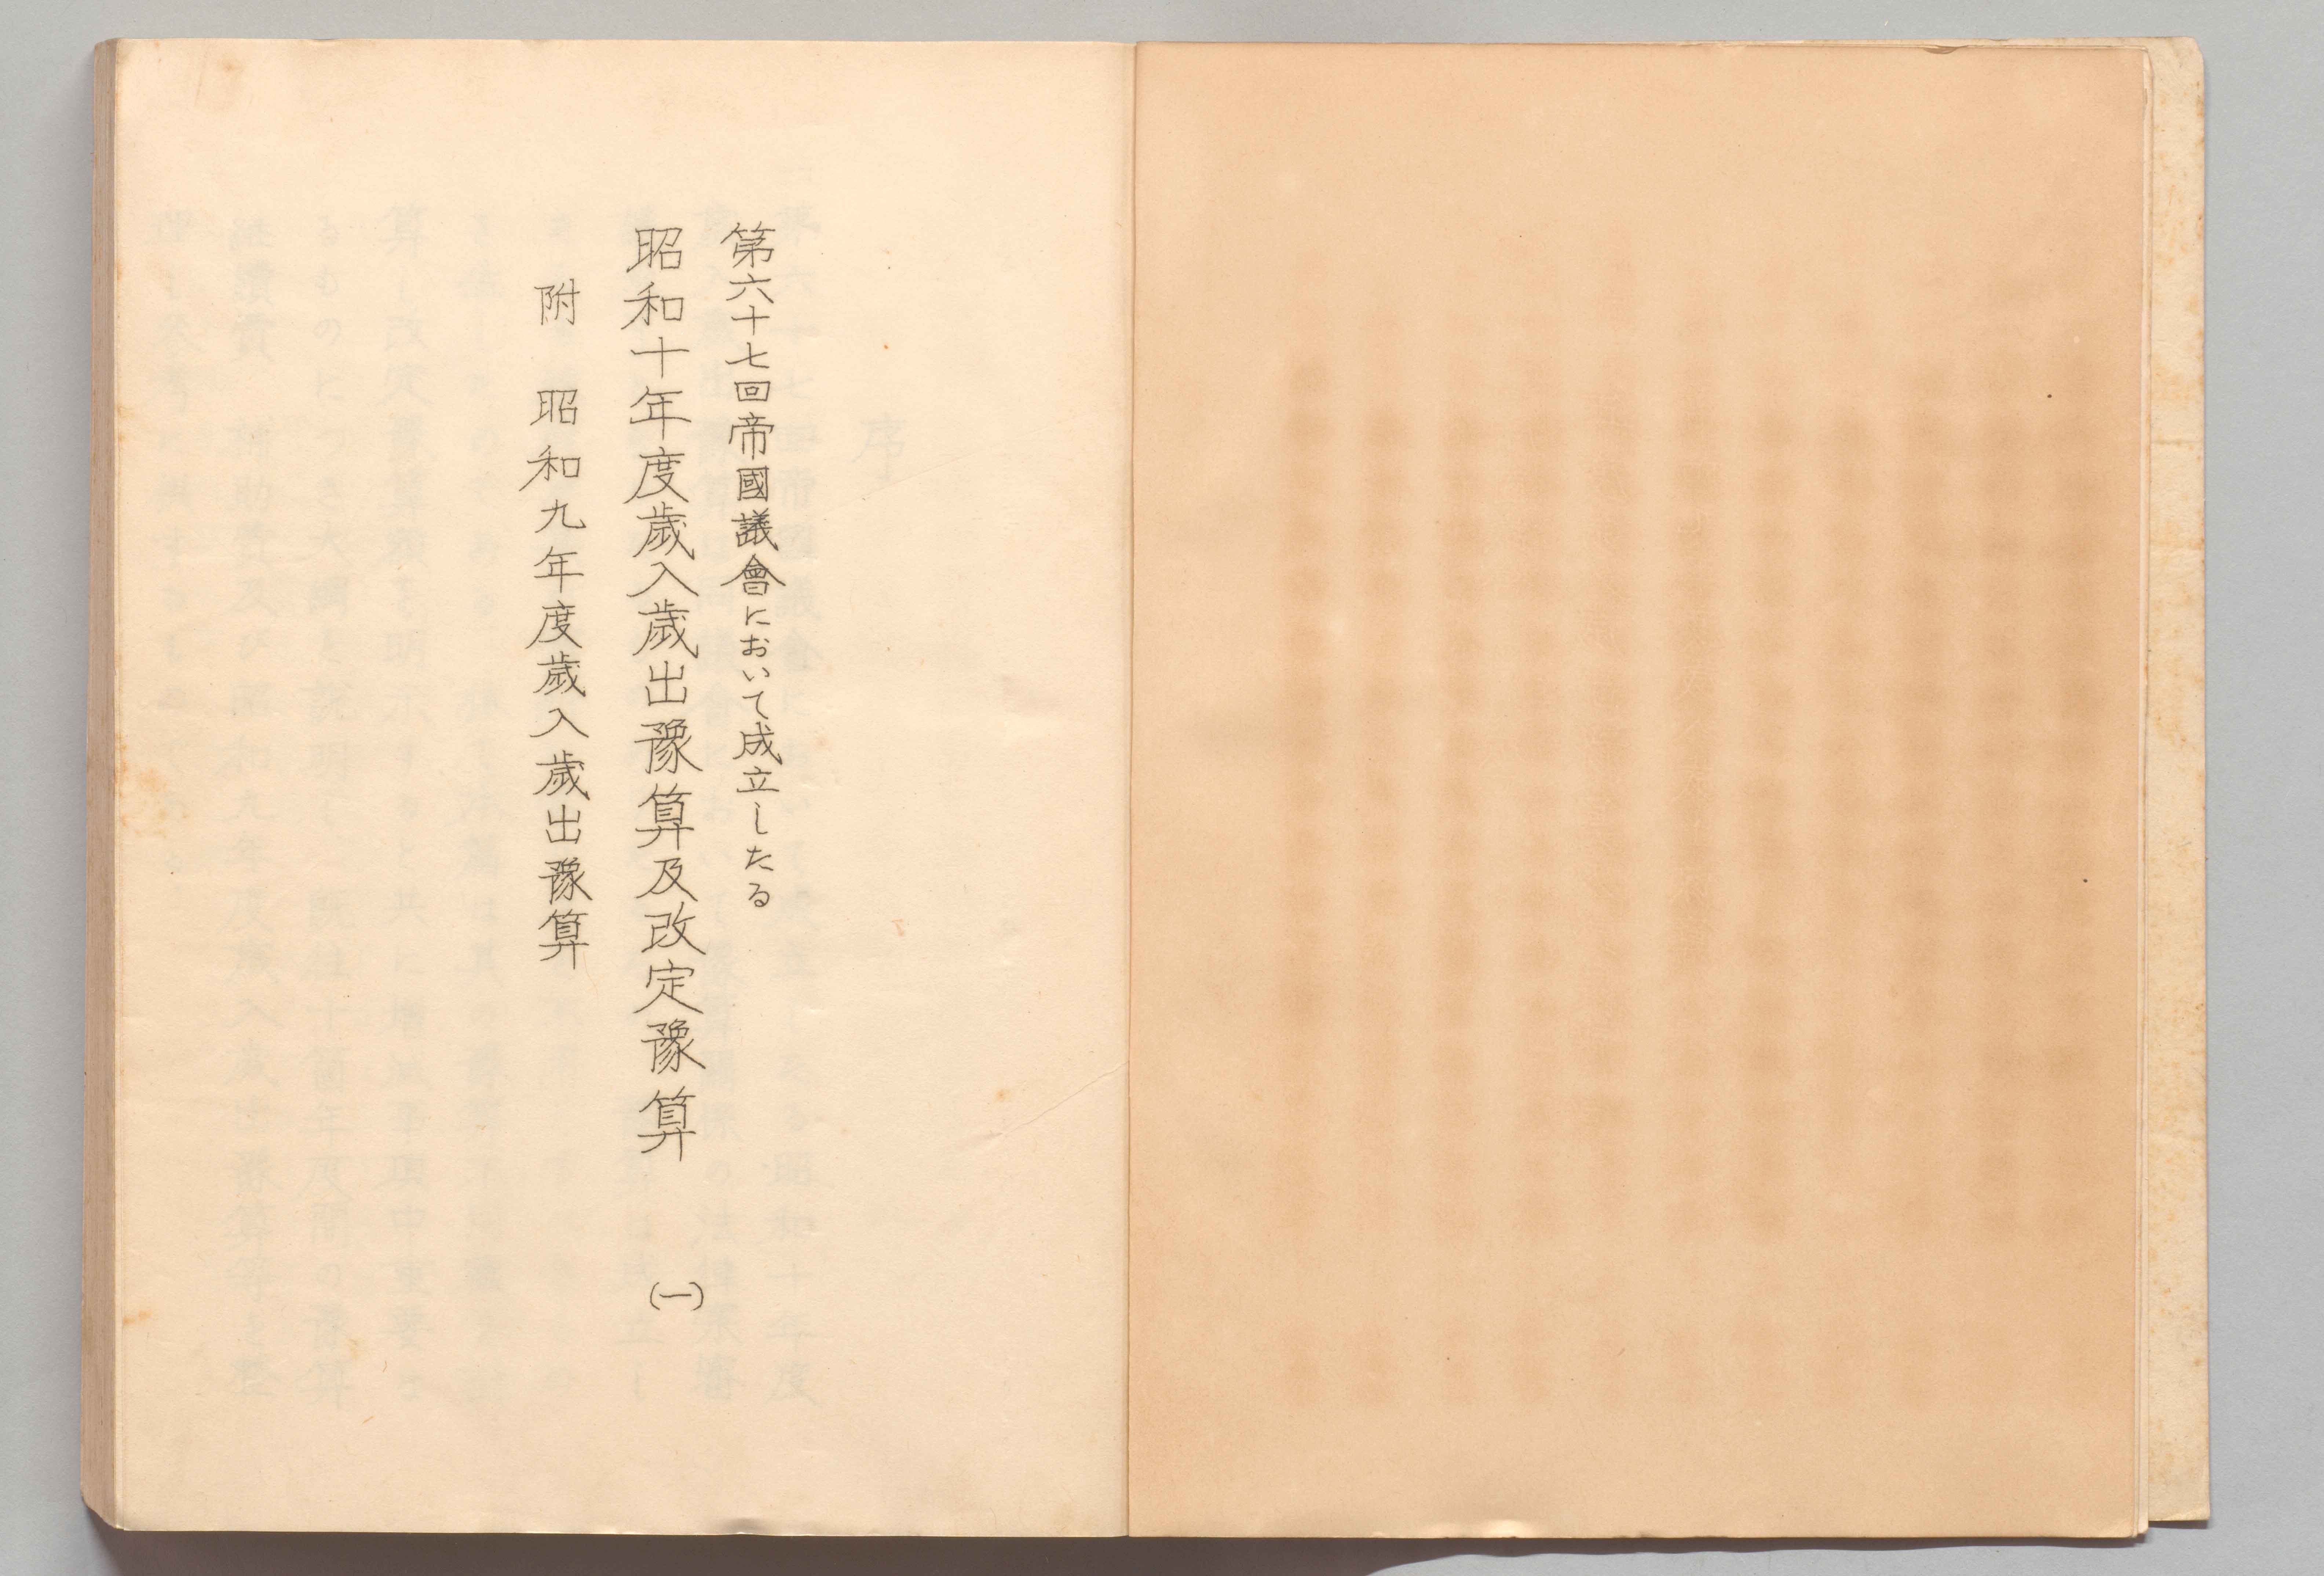 第六十七回帝國議會において成立したる
昭和十年度歲入歲出豫算及改定豫算 (一)
附 昭和九年度歲入歲出豫算